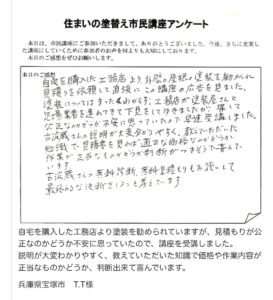 住まいの塗替え市民講座アンケート
本日は、市民講座にご参加いただきまして、ありがとうございました。今後、さらに充実した講座にしていくために参加者のお声を何よりも大切にしております。
本日のご感想をぜひお願いします。
本日のご感想
自宅を購入した工務店より外壁の屋根の塗装を勧められ
見積りを依頼して直後にこの講座の広告を見ました。
塗装については
工務店が塗装屋さんと
足場業者を連れてきて下見をして
公正なのかどうか不安に思っていたので早速受講しました。
古浜武さんの説明が大変分かりやすく、教えていただいた
知識で見積書を見れば適正な価格なのかどうか
作業が正当なものかどうか判断がつきそうで喜んで
います。
古浜武さんの無料診断、無料見積もりもお願いして
最終的な決断をしようと考えています
自宅を購入した工務店より塗装を勧められていますが、見積もりが公
正なのかどうか不安に思っていたので、講座を受講しました。
説明が大変わかりやすく、教えていただいた知識で価格や作業内容が
正当なものかどうか、判断出来て喜んでいます。
兵庫県宝塚市 T.T様